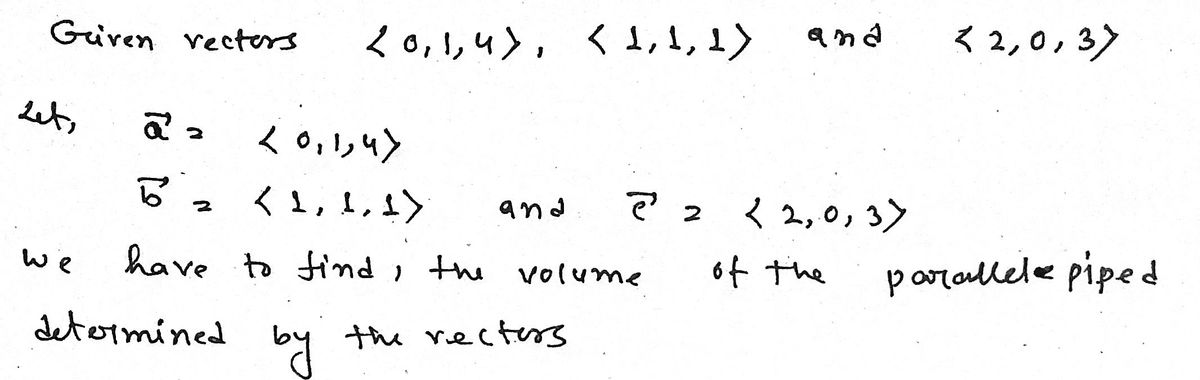 Given vectors <0,1,4>, <1,1,1> and <2,0,3>
Let, a⃗ = <0,1,4>
b⃗ = <1,1,1> and c⃗ = <2,0,3>
we have to find, the volume of the parallele piped
determined by the vectors